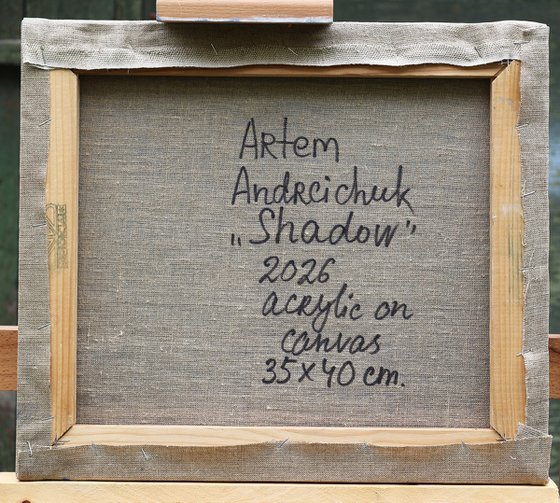 Artem
Andreichuk
„Shadow"
2026
acrylic on
canvas
35 x 40 cm.